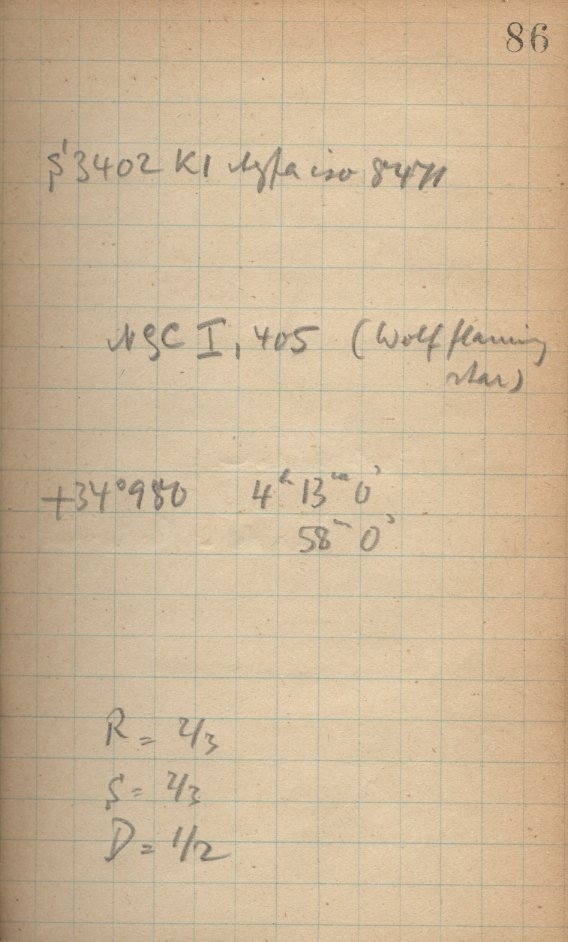 86
3402 K1 Agfa iso
NGC I, 405 (Wolf flaming
star)
+34°980 4ʰ 13ᵐ 0ˢ
58ᵐ 0ˢ
R = 2/3
S = 2/3
D = 1/2